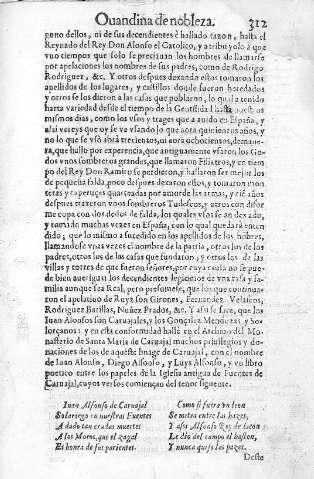 Ouandina de nobleza. 312
guno dellos, ni de sus decendientes è hallado razon, hasta el
Reynado del Rey Don Alonso el Catolico, y atribuyolo à que
vuo tiempos que solo se preciauan los hombres de llamarse
por apelaciones los nombres de sus padres, como de Rodrigo
Rodriguez, &c. Y otros despues dexando estas tomaron los
apellidos de los lugares, y castillos donde fueron heredados
y otros se los dieron a las casas que poblaron, lo qual a tenido
harta variedad desde el tiempo de la Gentilidad hasta nuestros
mismos dias, como los vsos y trages que a auido en España, y
assi vereys que oy se va vsando lo que aora quinientos años, y
no lo que se vsò abrà trecientos, ni aora ochocientos, demane-
ra, que hallo por experiencia, que antiguamente vsaron los Go-
dos vnos sombreros grandes, que llamaron Filistros, y en tiem
po del Rey Don Ramiro se perdieron, y hallaron ser mejor los
de pequeña falda, poco despues dexaron estos, y tomaron mon
teras y caperuças quarteadas por amor de las armas, y cié años
despues traxeron vnos sombreros Tudescos, y otros con difor
me copa con dos dedos de falda, los quales vsos se an dexado,
y tomado muchas vezes en España, con lo qual queda enten
dido, que lo mismo a sucedido en los apellidos de los hobres,
llamandose vnas vezes el nombre de la patria, otros los de los
padres, otros los de las casas que fundaron, y otros los de las
villas y torres de que fueron señores, por cuya causa no se pue-
de bien aueriguar los decendientes legitimos de vna casa y fa-
milia aunque sea Real, pero presumese, que los que continua-
ron el apelatiuo de Ruyz son Girones, Fernandez Velascos,
Rodriguez Barillas, Nuñez Prados, &c. Y assi se sabe, que los
Iuan Alonsos son Caruajales, y los Gonzalez Mendozas y So-
lorçanos: y en esta conformidad hallè en el Archiuo del Mo-
nasterio de Santa Maria de Caruajal muchos priuilegios y do-
naciones de los de aqueste linage de Caruajal, con el nombre
de Iuan Alonso, Diego Alfonso, y Luys Alfonso, y vn libro
poetico entre los papeles de la Iglesia antigua de Fuentes de
Caruajal, cuyos versos comiençan del tenor siguiente.
Iuan Alfonso de Caruajal
Solariego en nuestras Fuentes
A dado tan crudas muertes
A los Moros, que el zagal
Es honra de sus parientes.
Como si fuera vn leon
Se metea entre las hazes,
Y assi Alfonso Rey de Leon
Le dio del campo el baston,
Y nunca quiso las pazes.
Deste